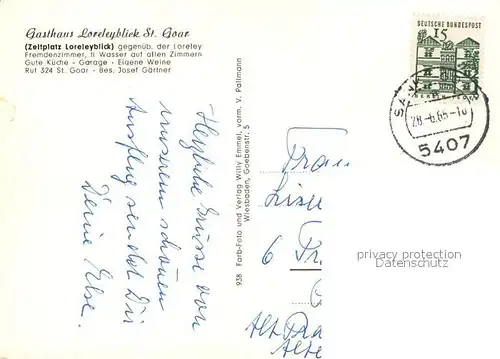 Gasthaus Loreleyblick St. Goar
(Zeltplatz Loreleyblick) gegenüb. der Loreley
Fremdenzimmer, fl. Wasser auf allen Zimmern
Gute Küche - Garage - Eigene Weine
Ruf 324 St. Goar - Bes. Josef Gärtner
Herzliche Grüsse von
unserem schönen
Ausflug sendet Dir
Deine Else.
938 Farb-Foto und Verlag Willy Emmel, vorm. V. Pallmann
Wiesbaden, Goebenstr. 5
DEUTSCHE BUNDESPOST
15
SANKT
28.-6.65-16
5407
Frau
6 Fr
privacy protection
Datenschutz